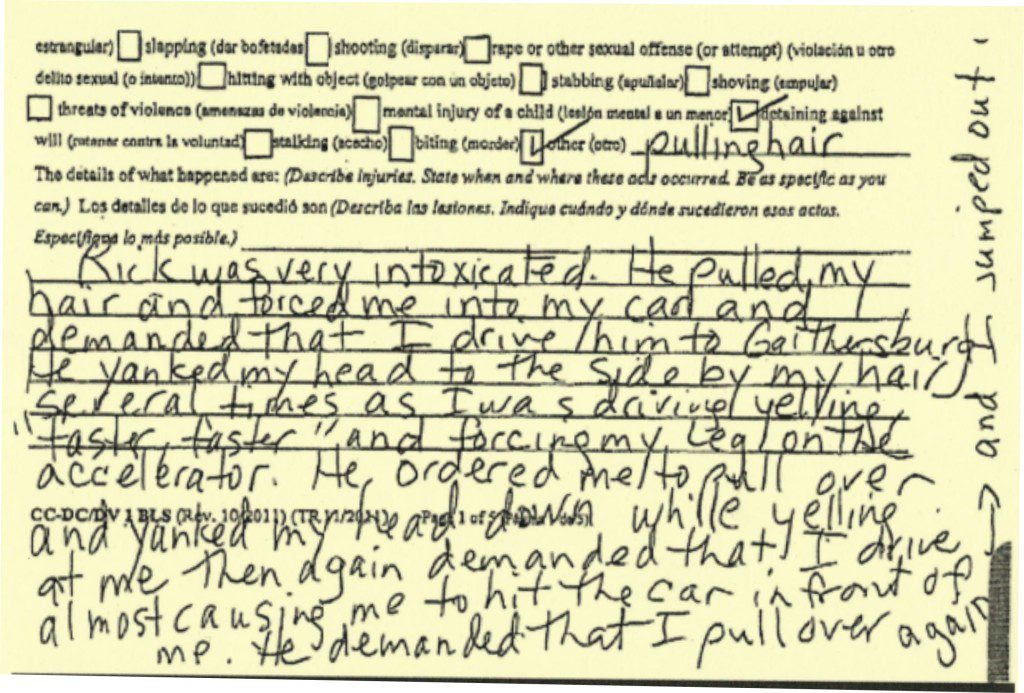 estrangular) slapping (dar bofetadas shooting (disparar) rape or other sexual offense (or attempt) (violación u otro
delito sexual (o intento)) hitting with object (golpear con un objeto) stabbing (apuñalar) shoving (empujar)
threats of violence (amenazas de violencia) mental injury of a child (lesión mental a un menor) detaining against
will (retener contra la voluntad) stalking (acecho) biting (morder) other (otro) pulling hair
The details of what happened are: (Describe injuries. State when and where these acts occurred. Be as specific as you
can.) Los detalles de lo que sucedió son (Describa las lesiones. Indique cuándo y dónde sucedieron esos actos.
Especifique lo más posible.)
Rick was very intoxicated. He pulled my
hair and forced me into my car and
demanded that I drive him to Gaithersburg
He yanked my head to the side by my hair
several times as I was driving yelling,
"faster, faster" and forcing my leg on the
accelerator. He ordered me to pull over
CC-DC/DV 1 BLS (Rev. 10/2011) (TR 11/2011) Page 1 of 5
and yanked my head down while yelling
at me then again demanded that I drive
almost causing me to hit the car in front of
me. He demanded that I pull over again
→ and I jumped out.